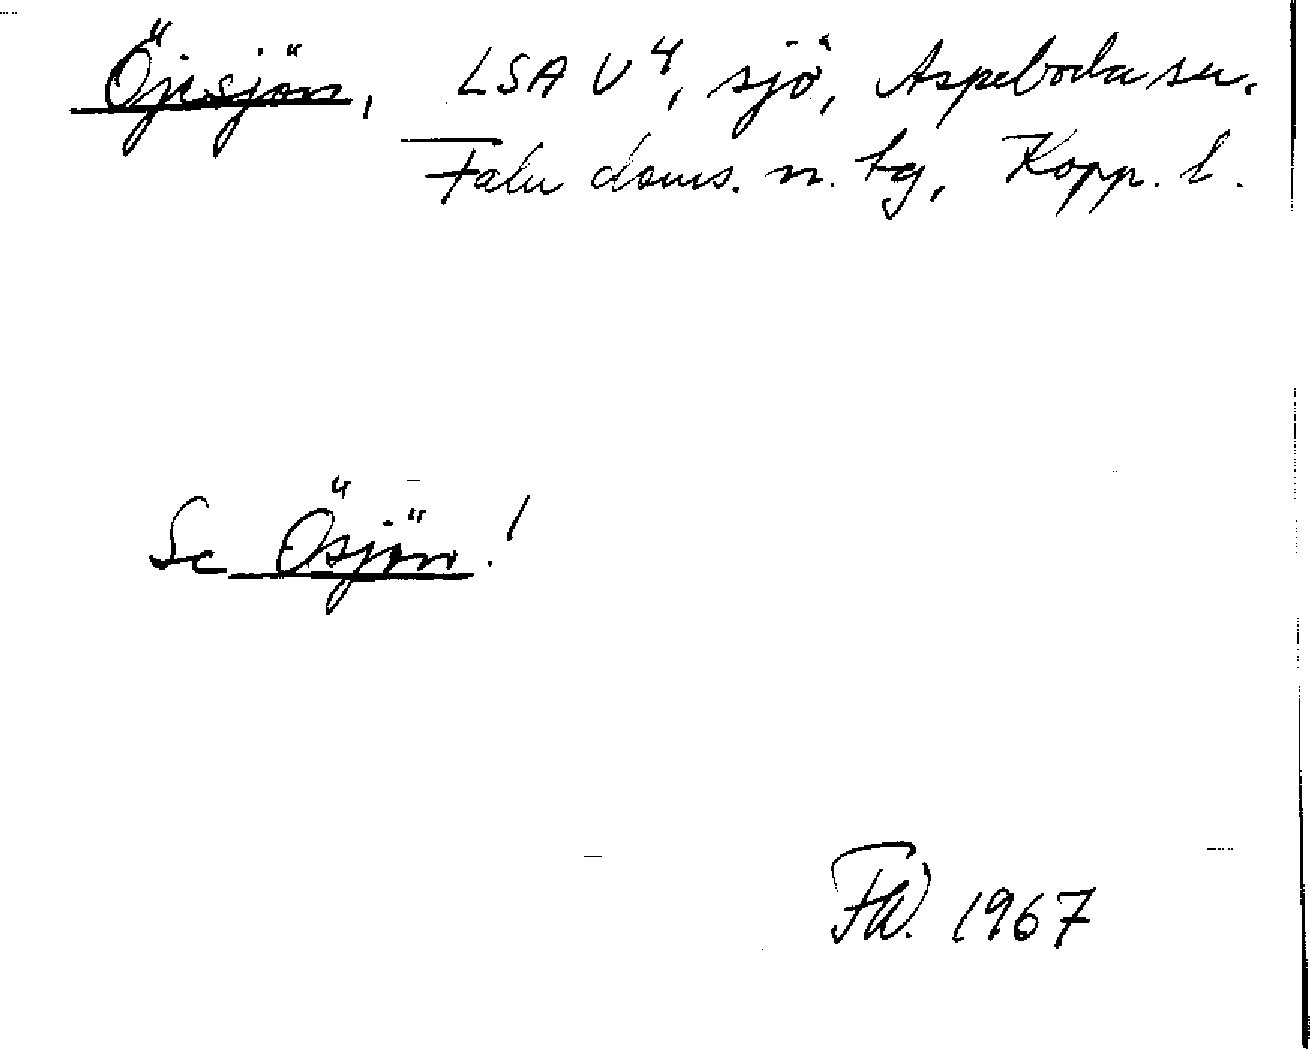 Öjesjön, LSA U4, sjö, Aspeboda sn.
Falu doms. n. tg, Kopp. l.
Se Ösjön!
FW. 1967